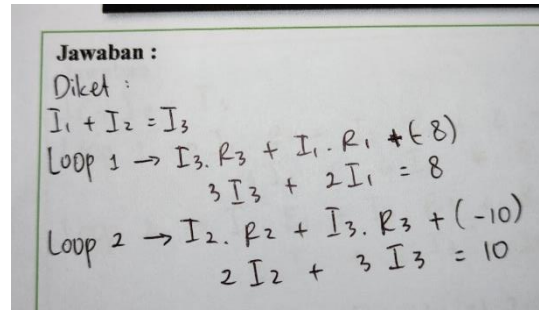 Jawaban :
Diket :
I₁ + I₂ = I₃
Loop 1 → I₃. R₃ + I₁. R₁ + (-8)
3 I₃ + 2I₁ = 8
Loop 2 → I₂. R₂ + I₃. R₃ + (-10)
2 I₂ + 3 I₃ = 10